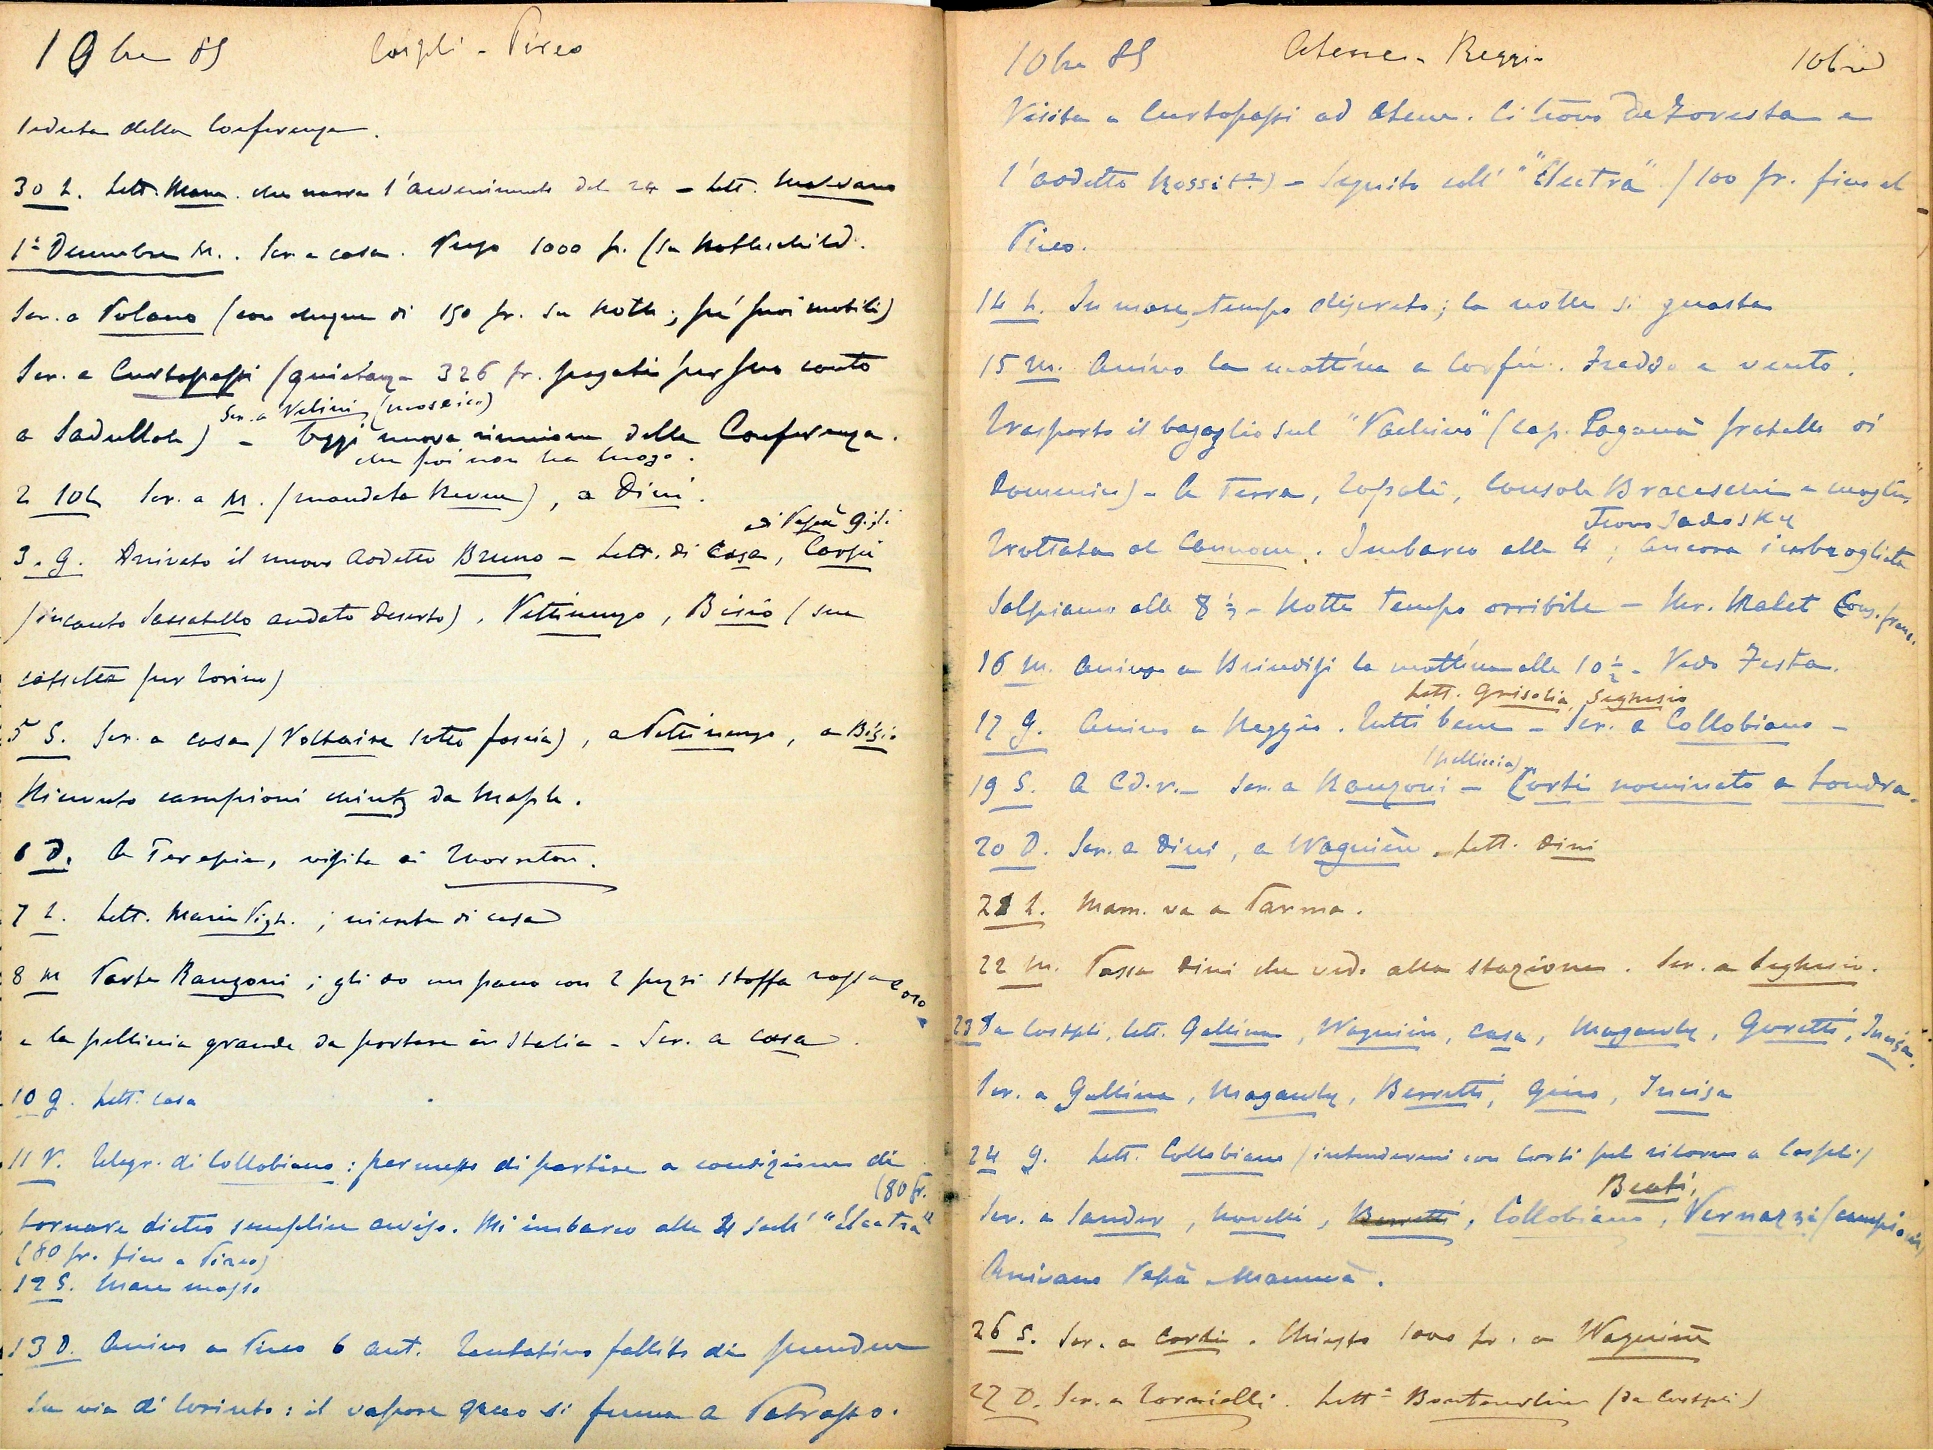 10bre 85 Cospli - Pireo
seduta della Conferenza.
30 L. Lett. Mam. che narra l'avvenimento del 24 - Lett. Malvano
1° Decembre M. . Scr. a casa. Pago 1000 fr. (su Rothschild.
Scr. a Volano (con chèque di 150 fr. su Roth; pei suoi mobili)
Scr. a Curtopassi (quietanza 326 fr. pagati per suo conto
Scr. a Velini (mosaico)
a Sadullah) - Oggi nuova riunione della Conferenza.
che poi non ha luogo.
2 Scr. a M. (mandata Revue), a Dini.
di Papà Gigi
3. G. Arrivato il nuovo addetto Bruno - Lett. di Casa, Corfù
(incanto Sassatello andato deserto), Vettimengo, Bisio (sua
cassetta per Torino)
5 S. Scr. a casa (Voltaire sotto fascia), a Vettimengo, a Bisio
Ricevuto campioni chintz da Maple.
6 D. A Terapia, visita ai Thornton.
7 L. Lett. Maria Vigh. ; niente di casa
8 M Parte Ranzoni ; gli do un pacco con 2 pezzi stoffa rossa e oro
e la pelliccia grande da portare in Italia - Scr. a casa.
10 G. Lett. casa
11 V. Telegr. di Collobiano : permesso di partire a condizione di
(80 fr.
tornare dietro semplice avviso. Mi imbarco alle 4 sull' "Electra"
(80 fr. fino a Pireo)
12 S. Mare mosso
13 D. Arrivo a Pireo 6 ant. Tentativo fallito di prendere
la via di Corinto : il vapore greco si ferma a Patrasso.
10bre 85 Atene - Reggio 10bre
Visita a Curtopassi ad Atene. Ci trovo De Foresta e
l'addetto Rossi (?) - Seguito coll' "Electra" (100 fr. fino al
Pireo.
14 L. In mare, tempo discreto ; la notte si guasta
15 M. Arrivo la mattina a Corfù. Freddo e vento.
Trasporto il bagaglio sul "Pachino" (cap. Paganà fratello di
Domenico) - A Terra, Console Braceschi e moglie,
Trovo Sadosky
Trottata al Cannone. Imbarco alle 4 ; ancora imbrogliata
Salpiamo alle 8 ½ - Notte tempo orribile - Mr. Malet Cons. franc.
16 M. Arrivo a Brindisi la mattina alle 10 ½ - Vedo Testa.
Lett. Grisolia, Seghesio
17 G. Arrivo a Reggio. Tutti bene - Scr. a Collobiano -
(pelliccia)
19 S. A Cd.r. - Scr. a Ranzoni - Corti nominato a Londra.
20 D. Scr. a Dini, a Wagnière. Lett. Dini
21 L. Mam. va a Parma.
22 M. Passa Dini che vedo alla stazione. Scr. a Seghesio.
23 Da Costpli, lett. Gallina, Wagnière, casa, Mogamby, Goretti, Incisa.
Scr. a Gallina, Mogamby, Berretti, Gino, Incisa
24 G. Lett. Collobiano (intendermi con Corti pel ritorno a Cospli)
Beati,
Scr. a Sander, Novelli, Collobiano, Vernazzi (campioni)
Arrivano Papà Mammà.
26 S. Scr. a Corti. Chiesto 1000 fr. a Wagnière
27 D. Scr. a Tornielli. Lett.ª (da Costpli)